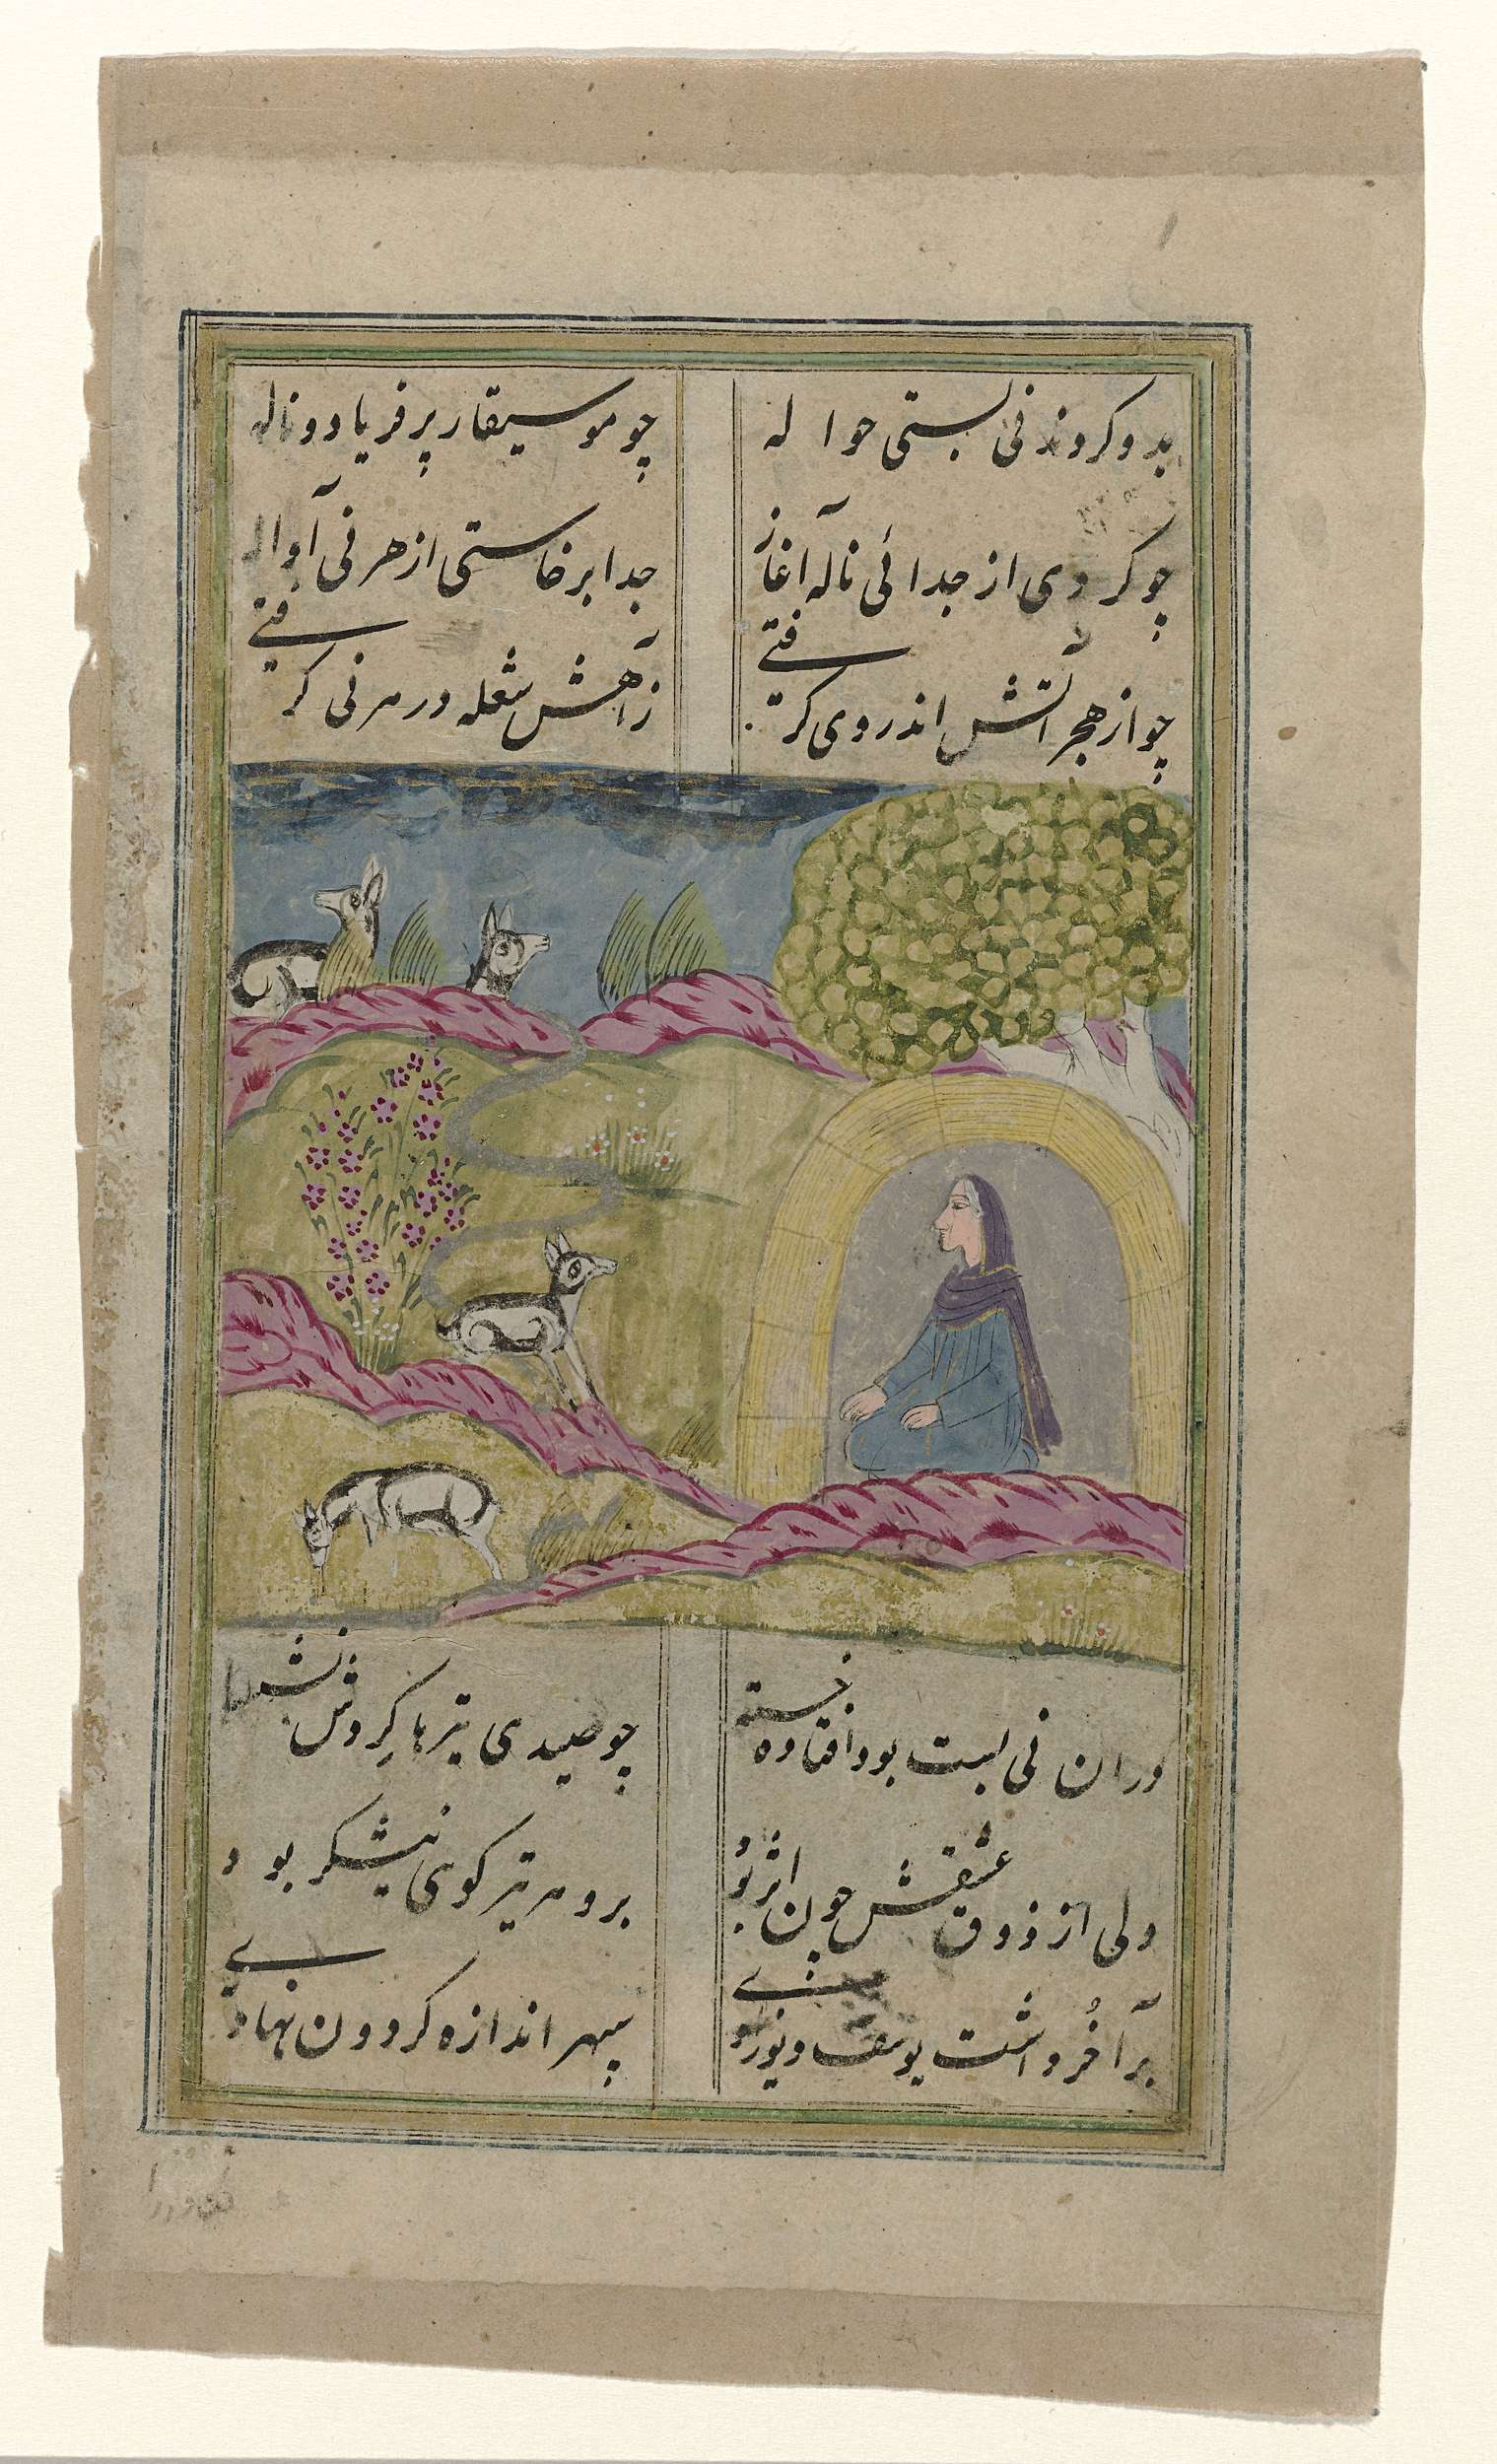 بدو کردند نی بستی حواله
چو موسیقار پر فریاد و ناله
چو کردی از جدائی ناله آغاز
جدا برخاستی از هر نی آواز
چو از هجر آتش اندر وی گرفتی
ز آهش شعله در هر نی گرفتی
دران نی بست بود افتاده خسته
چو صیدی تیرها گردش نشسته
ولی از ذوق عشقش چون اثر بود
برو هر تیر گوی نیشکر بود
بر آخر داشت
سپهر اندازه گردون نهادی